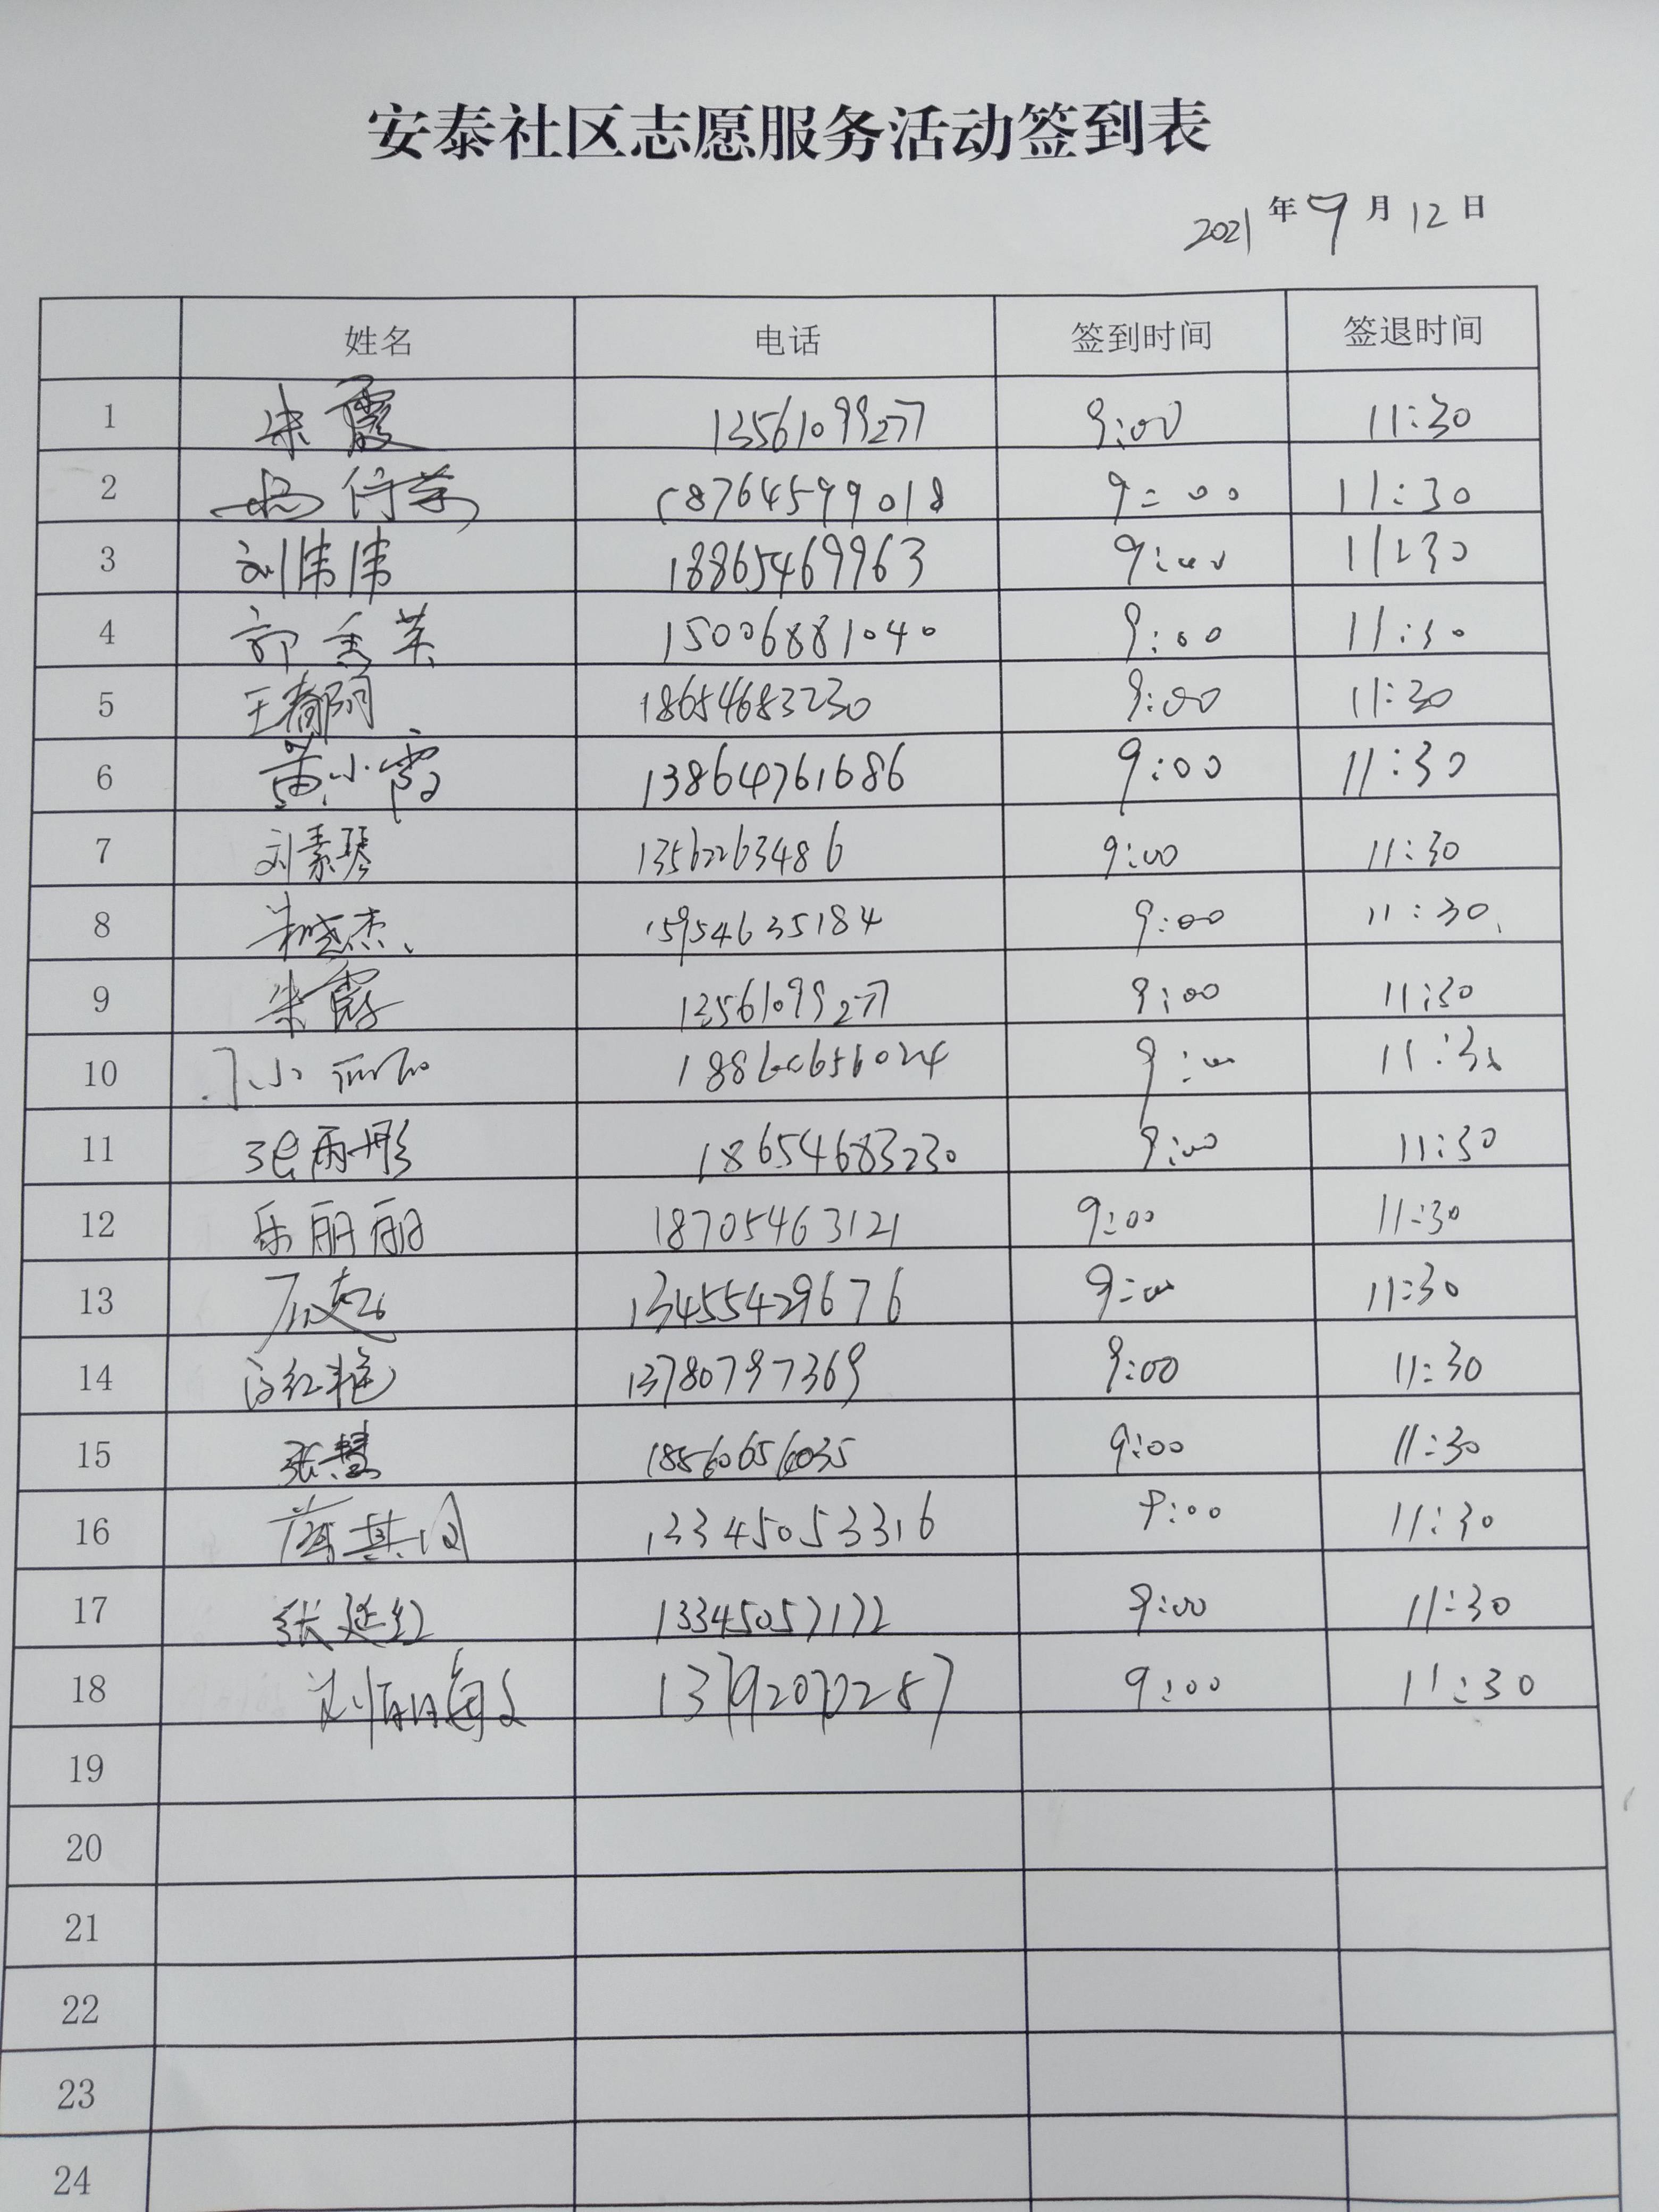 安泰社区志愿服务活动签到表
2021年9月12日
姓名 电话 签到时间 签退时间
1 朱霞 13561099277 9:00 11:30
2 18764599018 9:00 11:30
3 刘伟伟 18865469963 9:00 11:30
4 郭秀英 15006881040 9:00 11:30
5 王春丽 18654683230 9:00 11:30
6 黄小霞 13864761686 9:00 11:30
7 刘素琴 13562263486 9:00 11:30
8 朱晓杰 15954635184 9:00 11:30
9 朱霞 13561099277 9:00 11:30
10 9:00 11:30
11 张雨彤 18654683230 9:00 11:30
12 乐丽丽 18705463121 9:00 11:30
13 13455429676 9:00 11:30
14 13780797369 9:00 11:30
15 张慧 18560656035 9:00 11:30
16 13345053316 9:00 11:30
17 张延红 13345057172 9:00 11:30
18 13792072287 9:00 11:30
19
20
21
22
23
24